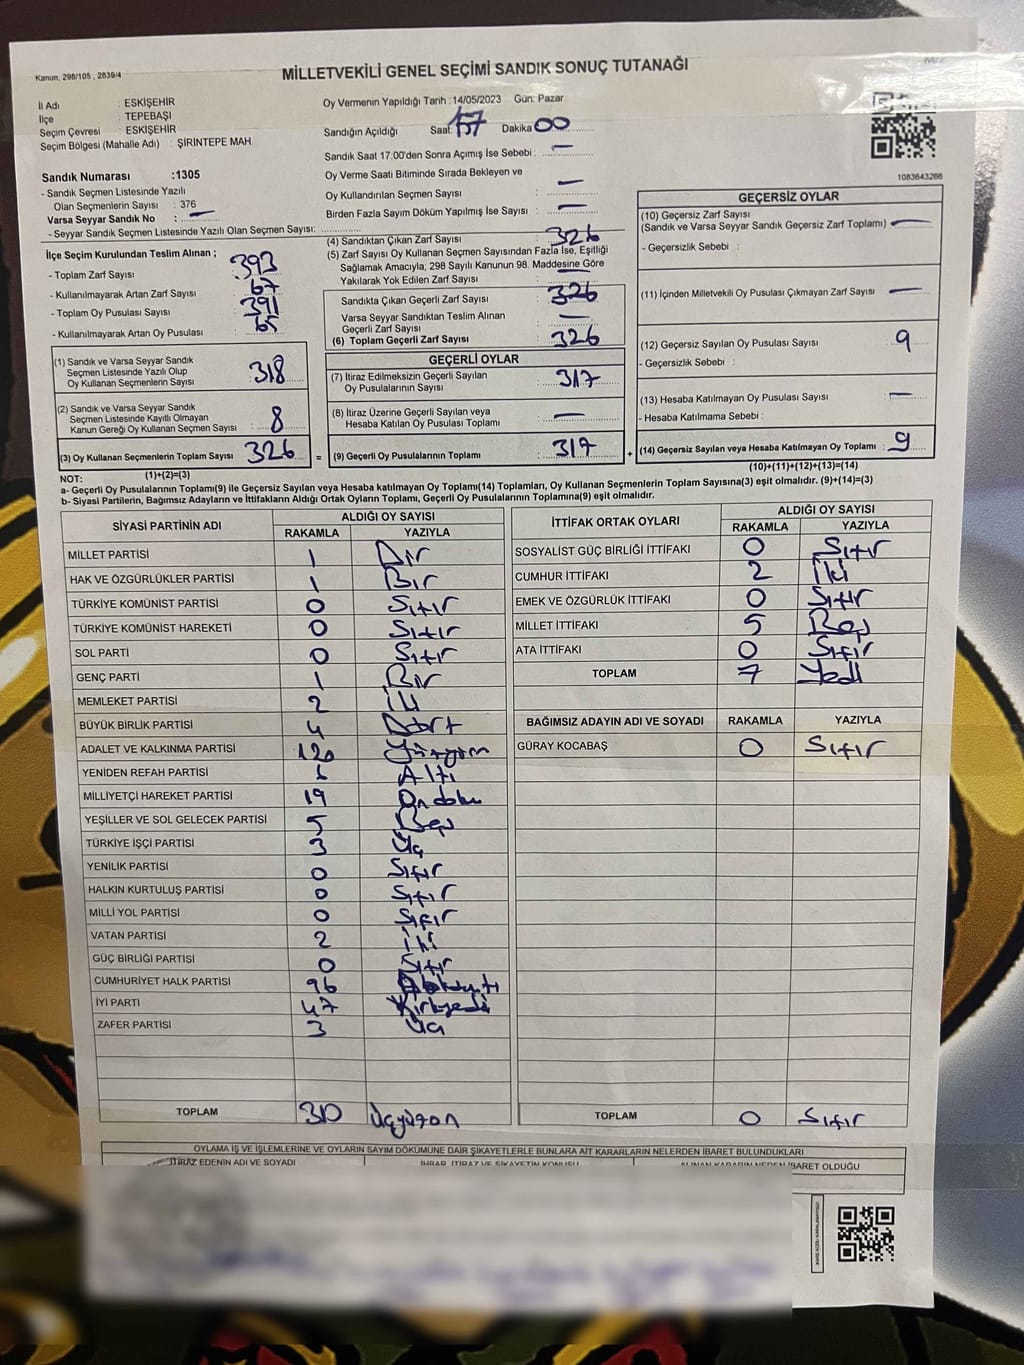 Kanun, 298/105 , 2839/4
MİLLETVEKİLİ GENEL SEÇİMİ SANDIK SONUÇ TUTANAĞI
İl Adı : ESKİŞEHİR
İlçe : TEPEBAŞI
Seçim Çevresi : ESKİŞEHİR
Seçim Bölgesi (Mahalle Adı) : ŞİRİNTEPE MAH.
Oy Vermenin Yapıldığı Tarih : 14/05/2023 Gün: Pazar
Sandığın Açıldığı Saat: 17 Dakika 00
Sandık Saat 17:00'den Sonra Açımış İse Sebebi : —
Oy Verme Saati Bitiminde Sırada Bekleyen ve
Oy Kullandırılan Seçmen Sayısı : —
Birden Fazla Sayım Döküm Yapılmış İse Sayısı : —
1083643266
Sandık Numarası :1305
- Sandık Seçmen Listesinde Yazılı
Olan Seçmenlerin Sayısı : 376
Varsa Seyyar Sandık No : —
- Seyyar Sandık Seçmen Listesinde Yazılı Olan Seçmen Sayısı:
İlçe Seçim Kurulundan Teslim Alınan ;
- Toplam Zarf Sayısı : 393
- Kullanılmayarak Artan Zarf Sayısı : 67
- Toplam Oy Pusulası Sayısı : 391
- Kullanılmayarak Artan Oy Pusulası : 65
(1) Sandık ve Varsa Seyyar Sandık
Seçmen Listesinde Yazılı Olup
Oy Kullanan Seçmenlerin Sayısı : 318
(2) Sandık ve Varsa Seyyar Sandık
Seçmen Listesinde Kayıtlı Olmayan
Kanun Gereği Oy Kullanan Seçmen Sayısı : 8
(3) Oy Kullanan Seçmenlerin Toplam Sayısı : 326
(4) Sandıktan Çıkan Zarf Sayısı : 326
(5) Zarf Sayısı Oy Kullanan Seçmen Sayısından Fazla İse, Eşitliği
Sağlamak Amacıyla, 298 Sayılı Kanunun 98. Maddesine Göre
Yakılarak Yok Edilen Zarf Sayısı : —
Sandıkta Çıkan Geçerli Zarf Sayısı : 326
Varsa Seyyar Sandıktan Teslim Alınan
Geçerli Zarf Sayısı : —
(6) Toplam Geçerli Zarf Sayısı : 326
GEÇERLİ OYLAR
(7) İtiraz Edilmeksizin Geçerli Sayılan
Oy Pusulalarının Sayısı : 317
(8) İtiraz Üzerine Geçerli Sayılan veya
Hesaba Katılan Oy Pusulası Toplamı : —
= (9) Geçerli Oy Pusulalarının Toplamı : 317
GEÇERSİZ OYLAR
(10) Geçersiz Zarf Sayısı
(Sandık ve Varsa Seyyar Sandık Geçersiz Zarf Toplamı) : —
- Geçersizlik Sebebi :
(11) İçinden Milletvekili Oy Pusulası Çıkmayan Zarf Sayısı : —
(12) Geçersiz Sayılan Oy Pusulası Sayısı : 9
- Geçersizlik Sebebi :
(13) Hesaba Katılmayan Oy Pusulası Sayısı : —
- Hesaba Katılmama Sebebi :
+ (14) Geçersiz Sayılan veya Hesaba Katılmayan Oy Toplamı : 9
NOT: (1)+(2)=(3)
(10)+(11)+(12)+(13)=(14)
a- Geçerli Oy Pusulalarının Toplamı(9) ile Geçersiz Sayılan veya Hesaba Katılmayan Oy Toplamı(14) Toplamları, Oy Kullanan Seçmenlerin Toplam Sayısına(3) eşit olmalıdır. (9)+(14)=(3)
b- Siyasi Partilerin, Bağımsız Adayların ve İttifakların Aldığı Ortak Oyların Toplamı, Geçerli Oy Pusulalarının Toplamına(9) eşit olmalıdır.
SİYASİ PARTİNİN ADI ALDIĞI OY SAYISI
RAKAMLA YAZIYLA
MİLLET PARTİSİ 1 Bir
HAK VE ÖZGÜRLÜKLER PARTİSİ 1 Bir
TÜRKİYE KOMÜNİST PARTİSİ 0 Sıfır
TÜRKİYE KOMÜNİST HAREKETİ 0 Sıfır
SOL PARTİ 0 Sıfır
GENÇ PARTİ 1 Bir
MEMLEKET PARTİSİ 2 İki
BÜYÜK BİRLİK PARTİSİ 4 Dört
ADALET VE KALKINMA PARTİSİ 120 Yüzyirm
YENİDEN REFAH PARTİSİ 6 Altı
MİLLİYETÇİ HAREKET PARTİSİ 19 Ondoku
YEŞİLLER VE SOL GELECEK PARTİSİ 5 Beş
TÜRKİYE İŞÇİ PARTİSİ 3 Üç
YENİLİK PARTİSİ 0 Sıfır
HALKIN KURTULUŞ PARTİSİ 0 Sıfır
MİLLİ YOL PARTİSİ 0 Sıfır
VATAN PARTİSİ 2 İki
GÜÇ BİRLİĞİ PARTİSİ 0 Sıfır
CUMHURİYET HALK PARTİSİ 96
İYİ PARTİ 47 Kırkyedi
ZAFER PARTİSİ 3 Üç
TOPLAM 310 Üçyüzon
İTTİFAK ORTAK OYLARI ALDIĞI OY SAYISI
RAKAMLA YAZIYLA
SOSYALİST GÜÇ BİRLİĞİ İTTİFAKI 0 Sıfır
CUMHUR İTTİFAKI 2 İki
EMEK VE ÖZGÜRLÜK İTTİFAKI 0 Sıfır
MİLLET İTTİFAKI 5 Beş
ATA İTTİFAKI 0 Sıfır
TOPLAM 7 Yedi
BAĞIMSIZ ADAYIN ADI VE SOYADI RAKAMLA YAZIYLA
GÜRAY KOCABAŞ 0 Sıfır
TOPLAM 0 Sıfır
OYLAMA İŞ VE İŞLEMLERİNE VE OYLARIN SAYIM DÖKÜMÜNE DAİR ŞİKAYETLERLE BUNLARA AİT KARARLARIN NELERDEN İBARET BULUNDUKLARI
İTİRAZ EDENİN ADI VE SOYADI İHBAR, İTİRAZ VE ŞİKAYETİN KONUSU ALINAN KARARIN NEDEN İBARET OLDUĞU